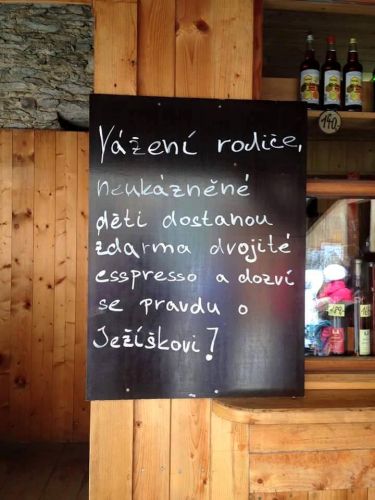 Vážení rodiče,
neukázněné
děti dostanou
zdarma dvojité
esspresso a dozví
se pravdu o
Ježíškovi!
140.-